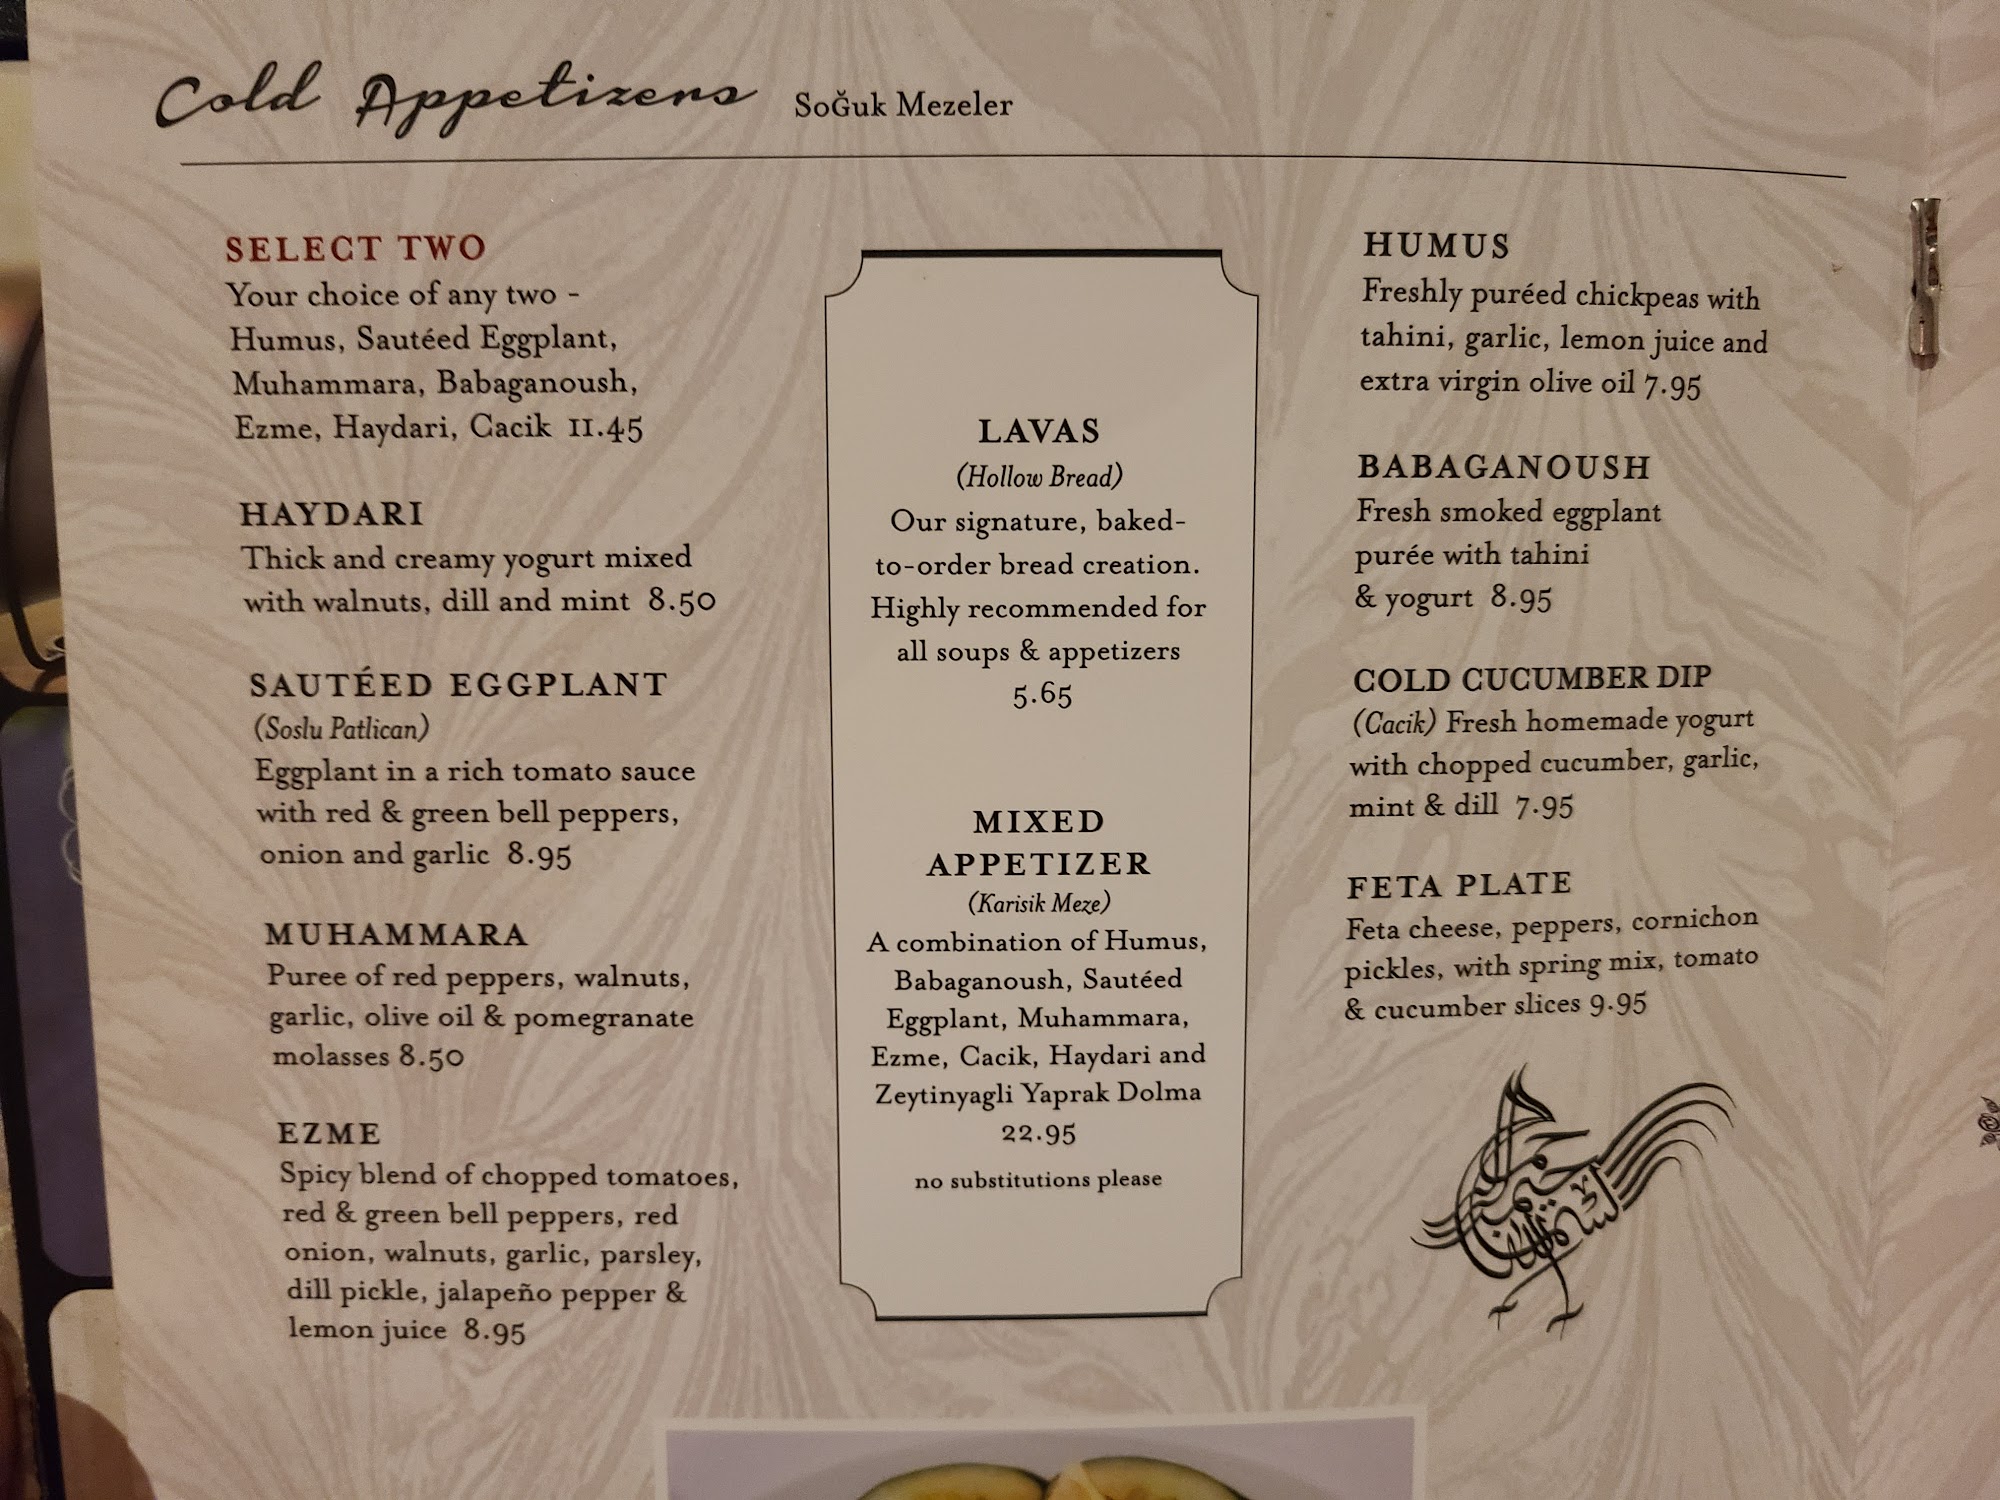 Cold Appetizers SoĞuk Mezeler
SELECT TWO
Your choice of any two -
Humus, Sautéed Eggplant,
Muhammara, Babaganoush,
Ezme, Haydari, Cacik 11.45
HAYDARI
Thick and creamy yogurt mixed
with walnuts, dill and mint 8.50
SAUTÉED EGGPLANT
(Soslu Patlican)
Eggplant in a rich tomato sauce
with red & green bell peppers,
onion and garlic 8.95
MUHAMMARA
Puree of red peppers, walnuts,
garlic, olive oil & pomegranate
molasses 8.50
EZME
Spicy blend of chopped tomatoes,
red & green bell peppers, red
onion, walnuts, garlic, parsley,
dill pickle, jalapeño pepper &
lemon juice 8.95
LAVAS
(Hollow Bread)
Our signature, baked-
to-order bread creation.
Highly recommended for
all soups & appetizers
5.65
MIXED
APPETIZER
(Karisik Meze)
A combination of Humus,
Babaganoush, Sautéed
Eggplant, Muhammara,
Ezme, Cacik, Haydari and
Zeytinyagli Yaprak Dolma
22.95
no substitutions please
HUMUS
Freshly puréed chickpeas with
tahini, garlic, lemon juice and
extra virgin olive oil 7.95
BABAGANOUSH
Fresh smoked eggplant
purée with tahini
& yogurt 8.95
COLD CUCUMBER DIP
(Cacik) Fresh homemade yogurt
with chopped cucumber, garlic,
mint & dill 7.95
FETA PLATE
Feta cheese, peppers, cornichon
pickles, with spring mix, tomato
& cucumber slices 9.95